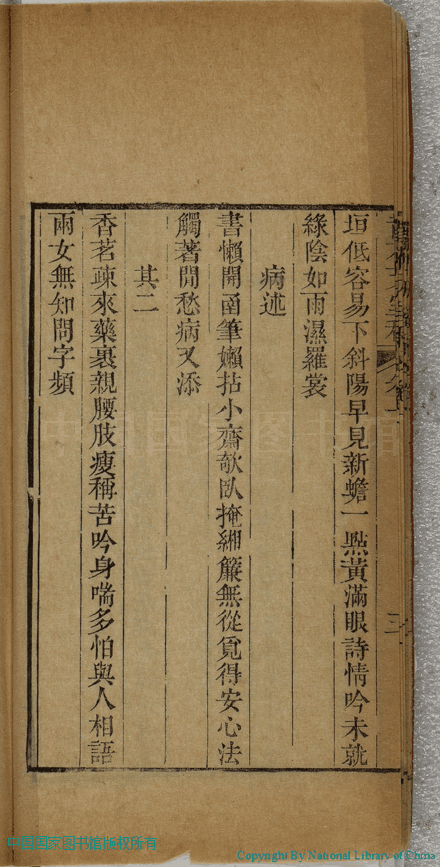 垣低容易下斜陽早見新蟾一㸃黃滿眼詩情吟未就
綠陰如雨濕羅裳
病述
書懶開函筆嬾拈小齋欹臥掩緗簾無從覓得安心法
觸著閒愁病又添
其二
香茗疎來藥裹親腰肢瘦稱苦吟身喘多怕與人相語
兩女無知問字頻
中国国家图书馆版权所有
Copyright By National Library of China